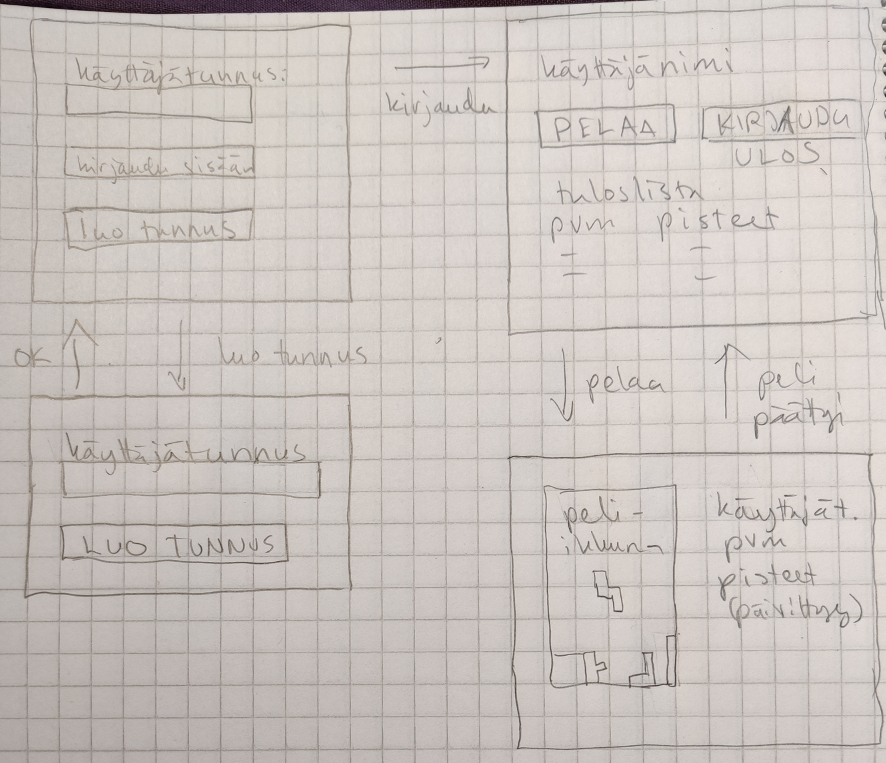 käyttäjätunnus:
kirjaudu sisään
luo tunnus
kirjaudu
käyttäjänimi
PELAA
KIRJAUDU
ULOS
tuloslista
pvm pisteet
OK
luo tunnus
pelaa
peli
päätyi
käyttäjätunnus
LUO TUNNUS
peli-
ikkuna
käyttäjät.
pvm
pisteet
(päivittyy)